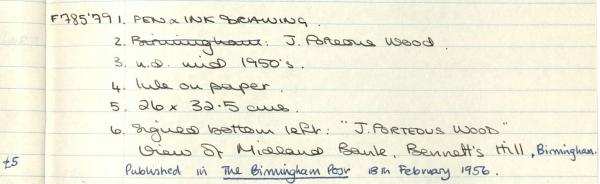 F785'79 1. PEN & INK DRAWING.
2. Birmingham: J. Porteous Wood.
3. n.d. mid 1950's.
4. Ink on paper.
5. 26 x 32.5 cms.
6. Signed bottom left: "J. PORTEOUS WOOD"
View of Midland Bank, Bennett's Hill, Birmingham.
£5 Published in The Birmingham Post 13th February 1956.